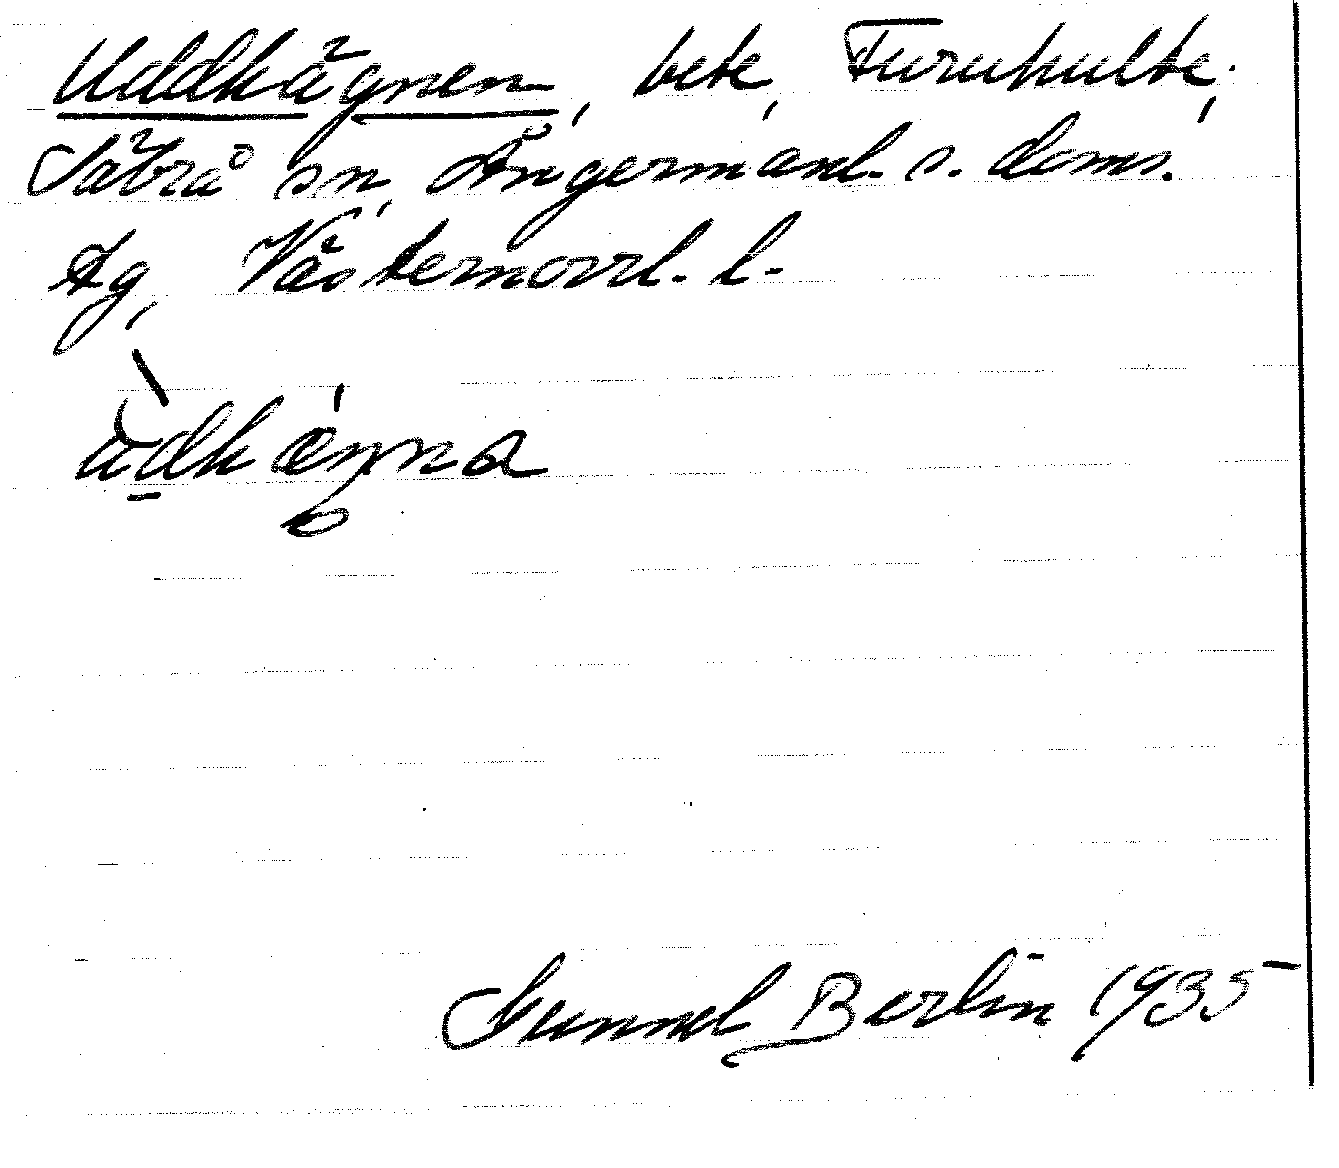 Uddhägnen, bete, Furuhulte,
Säbrå sn, Ångermanl. s. doms.
tg, Västernorrl. l.
Gunnel Berlin 1935